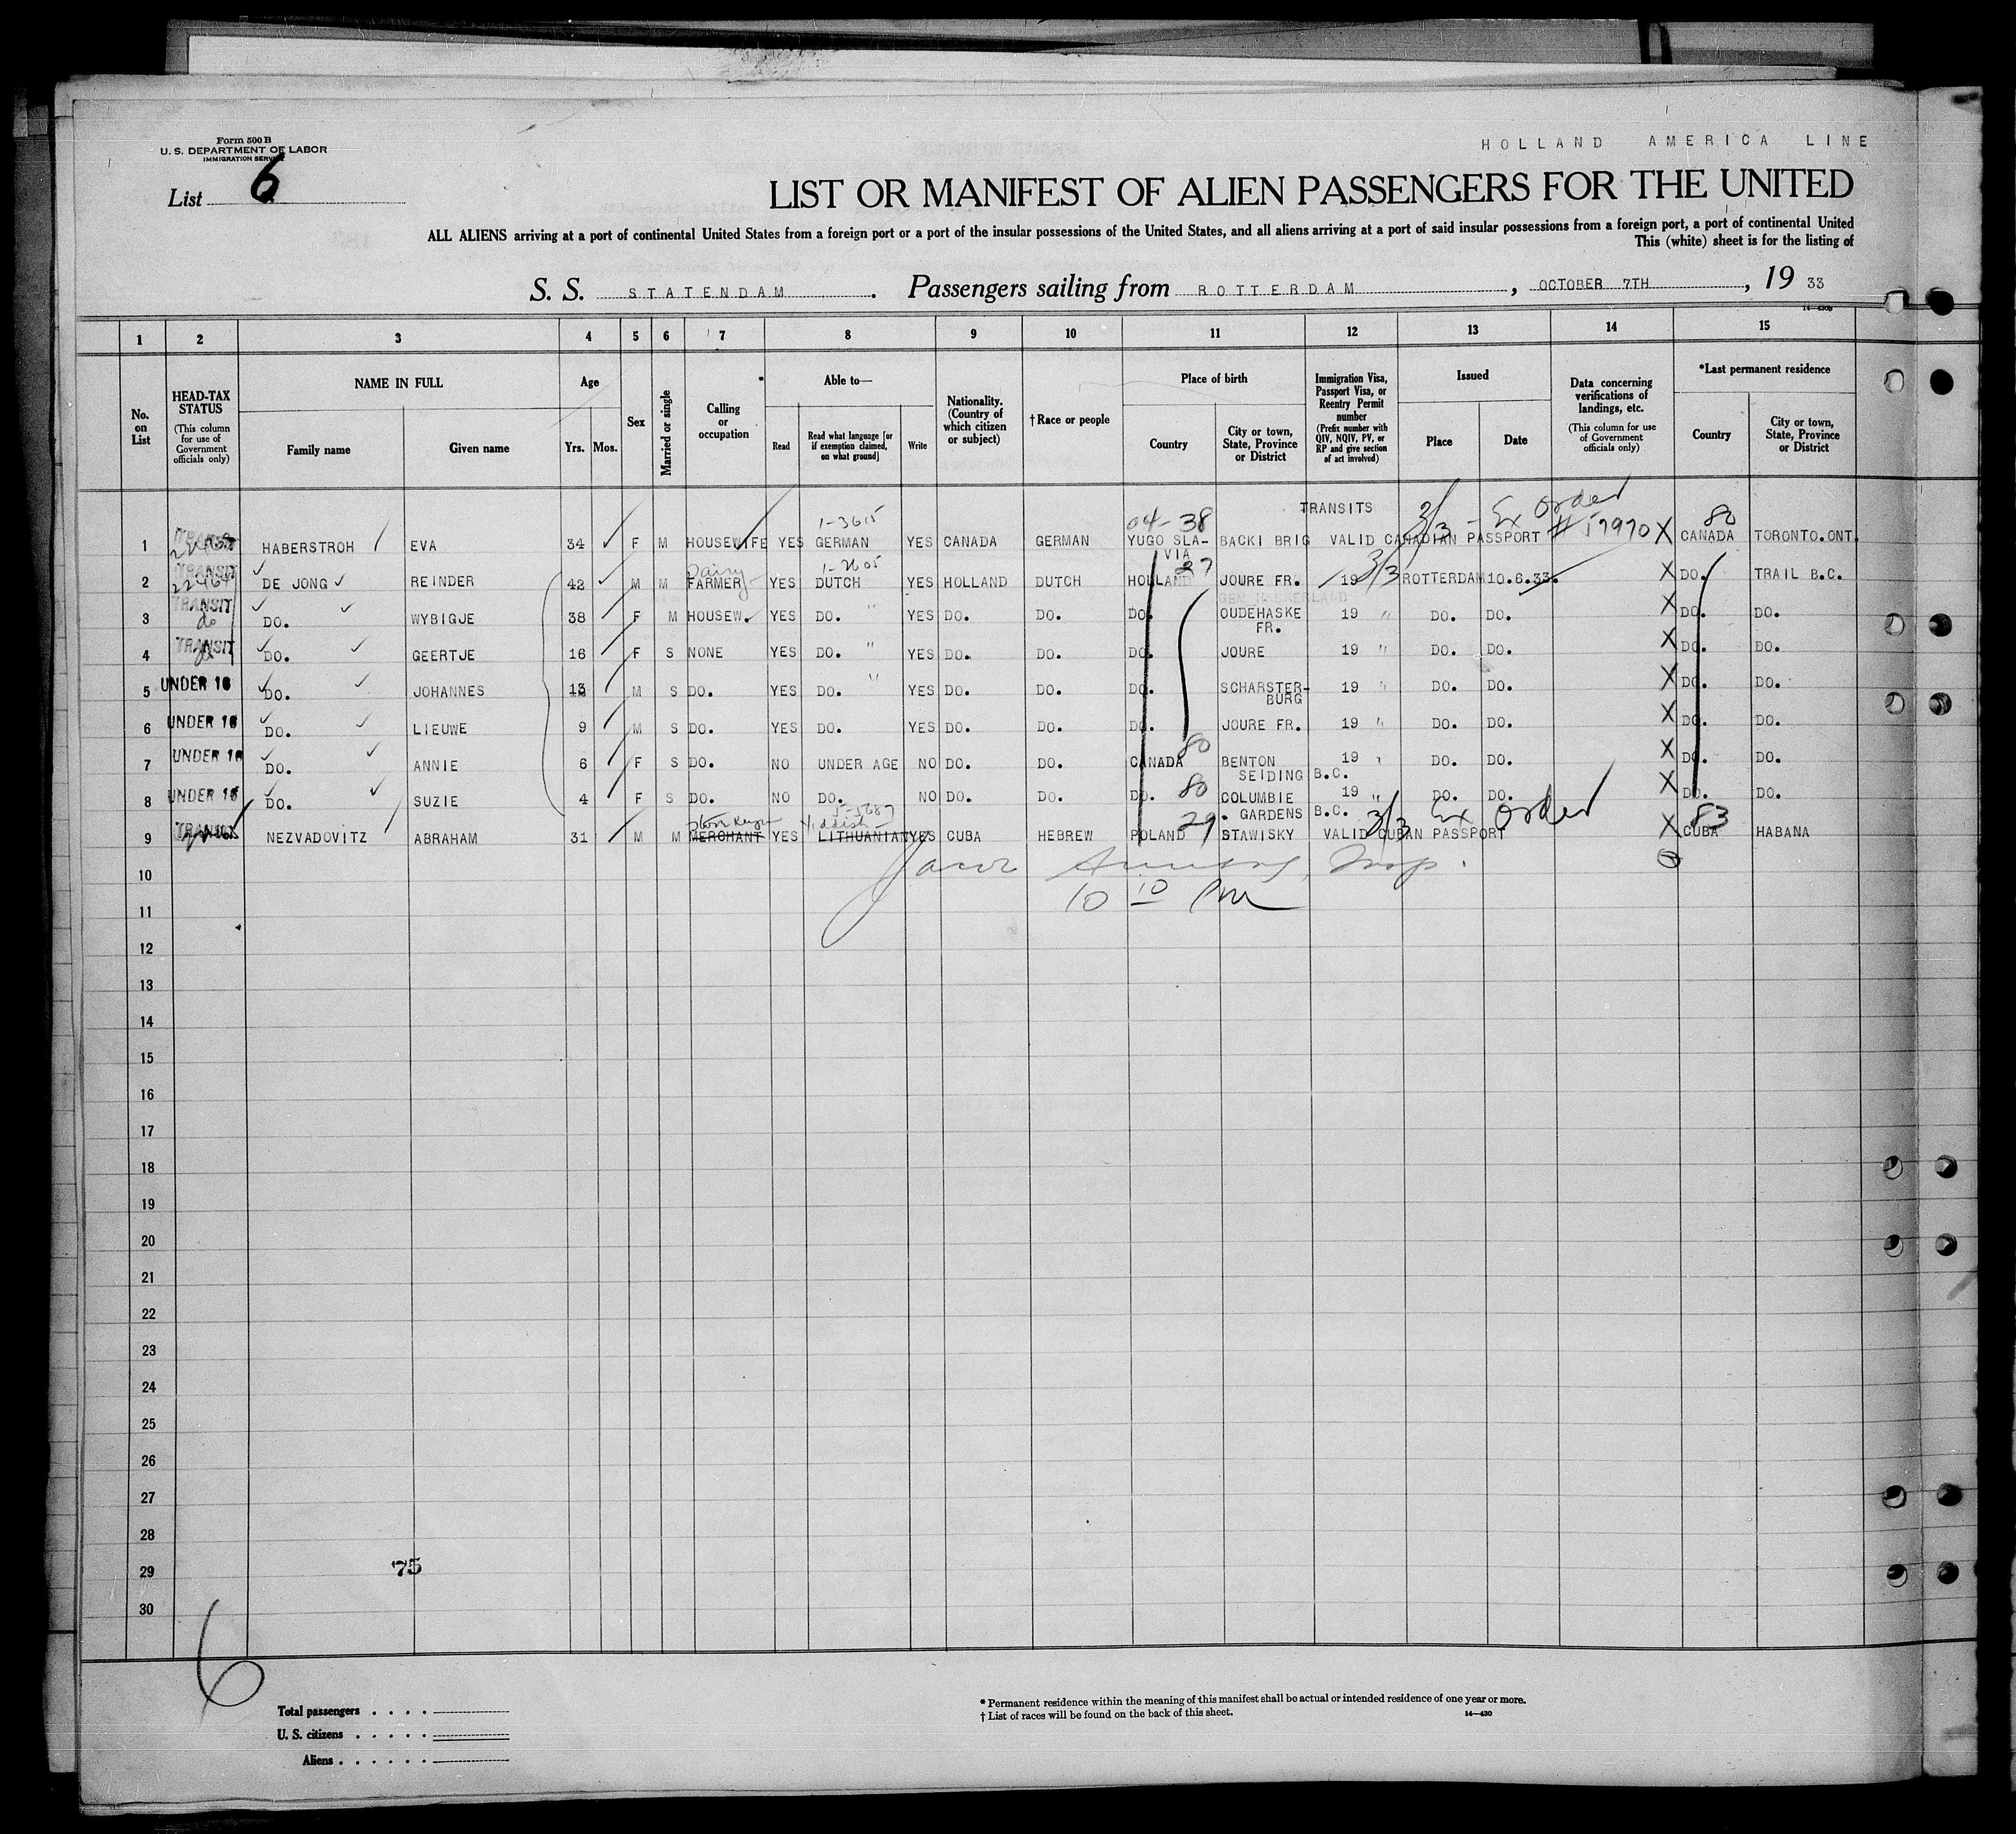 Form 500 B
U. S. DEPARTMENT OF LABOR
IMMIGRATION SERVICE
HOLLAND AMERICA LINE
List 6
LIST OR MANIFEST OF ALIEN PASSENGERS FOR THE UNITED
ALL ALIENS arriving at a port of continental United States from a foreign port or a port of the insular possessions of the United States, and all aliens arriving at a port of said insular possessions from a foreign port, a port of continental United
This (white) sheet is for the listing of
S. S. STATENDAM. Passengers sailing from ROTTERDAM, OCTOBER 7TH, 19 33
14—430b
1 2 3 4 5 6 7 8 9 10 11 12 13 14 15
No. on List
HEAD-TAX STATUS (This column for use of Government officials only)
NAME IN FULL
Family name
Given name
Age
Yrs. Mos.
Sex
Married or single
Calling or occupation
Able to—
Read
Read what language [or if exemption claimed, on what ground]
Write
Nationality. (Country of which citizen or subject)
†Race or people
Place of birth
Country
City or town, State, Province or District
Immigration Visa, Passport Visa, or Reentry Permit number (Prefix number with QIV, NQIV, PV, or RP and give section of act involved)
Issued
Place
Date
Data concerning verifications of landings, etc. (This column for use of Government officials only)
*Last permanent residence
Country
City or town, State, Province or District
TRANSITS
3/3 - Ex Order
1-3615 04-38 # 57970 80
1 TRANSIT HABERSTROH EVA 34 F M HOUSEWIFE YES GERMAN YES CANADA GERMAN YUGO SLAVIA BACKI BRIG VALID CANADIAN PASSPORT X CANADA TORONTO.ONT.
Dairy 1-2605 27 3/3
2 TRANSIT 22464 DE JONG REINDER 42 M M FARMER YES DUTCH YES HOLLAND DUTCH HOLLAND JOURE FR. 19 ROTTERDAM 10.6.33. X DO. TRAIL B.C.
3 TRANSIT do DO. WYBIGJE 38 F M HOUSEW. YES DO. " YES DO. DO. DO. OUDEHASKE FR. 19 " DO. DO. X DO. DO.
4 TRANSIT DO. GEERTJE 16 F S NONE YES DO. " YES DO. DO. DO. JOURE 19 " DO. DO. X DO. DO.
5 UNDER 16 DO. JOHANNES 13 M S DO. YES DO. " YES DO. DO. DO. SCHARSTER-BURG 19 " DO. DO. X DO. DO.
6 UNDER 16 DO. LIEUWE 9 M S DO. YES DO. YES DO. DO. DO. JOURE FR. 19 " DO. DO. X DO. DO.
80
7 UNDER 16 DO. ANNIE 6 F S DO. NO UNDER AGE NO DO. DO. CANADA BENTON SEIDING B.C. 19 " DO. DO. X DO. DO.
8 UNDER 16 DO. SUZIE 4 F S DO. NO DO. NO DO. DO. DO. 80 COLUMBIE GARDENS B.C. 19 " DO. DO. X DO. DO.
Store Keeper Yiddish 5-5687 29 3/3 Ex Order 83
9 TRANSIT NEZVADOVITZ ABRAHAM 31 M M MERCHANT YES LITHUANIAN YES CUBA HEBREW POLAND STAWISKY VALID CUBAN PASSPORT X CUBA HABANA
10
10 10 PM
11
12
13
14
15
16
17
18
19
20
21
22
23
24
25
26
27
28
29 75
30
6
Total passengers . . . .
U. S. citizens . . . . .
Aliens . . . . . .
* Permanent residence within the meaning of this manifest shall be actual or intended residence of one year or more.
† List of races will be found on the back of this sheet.
14—430